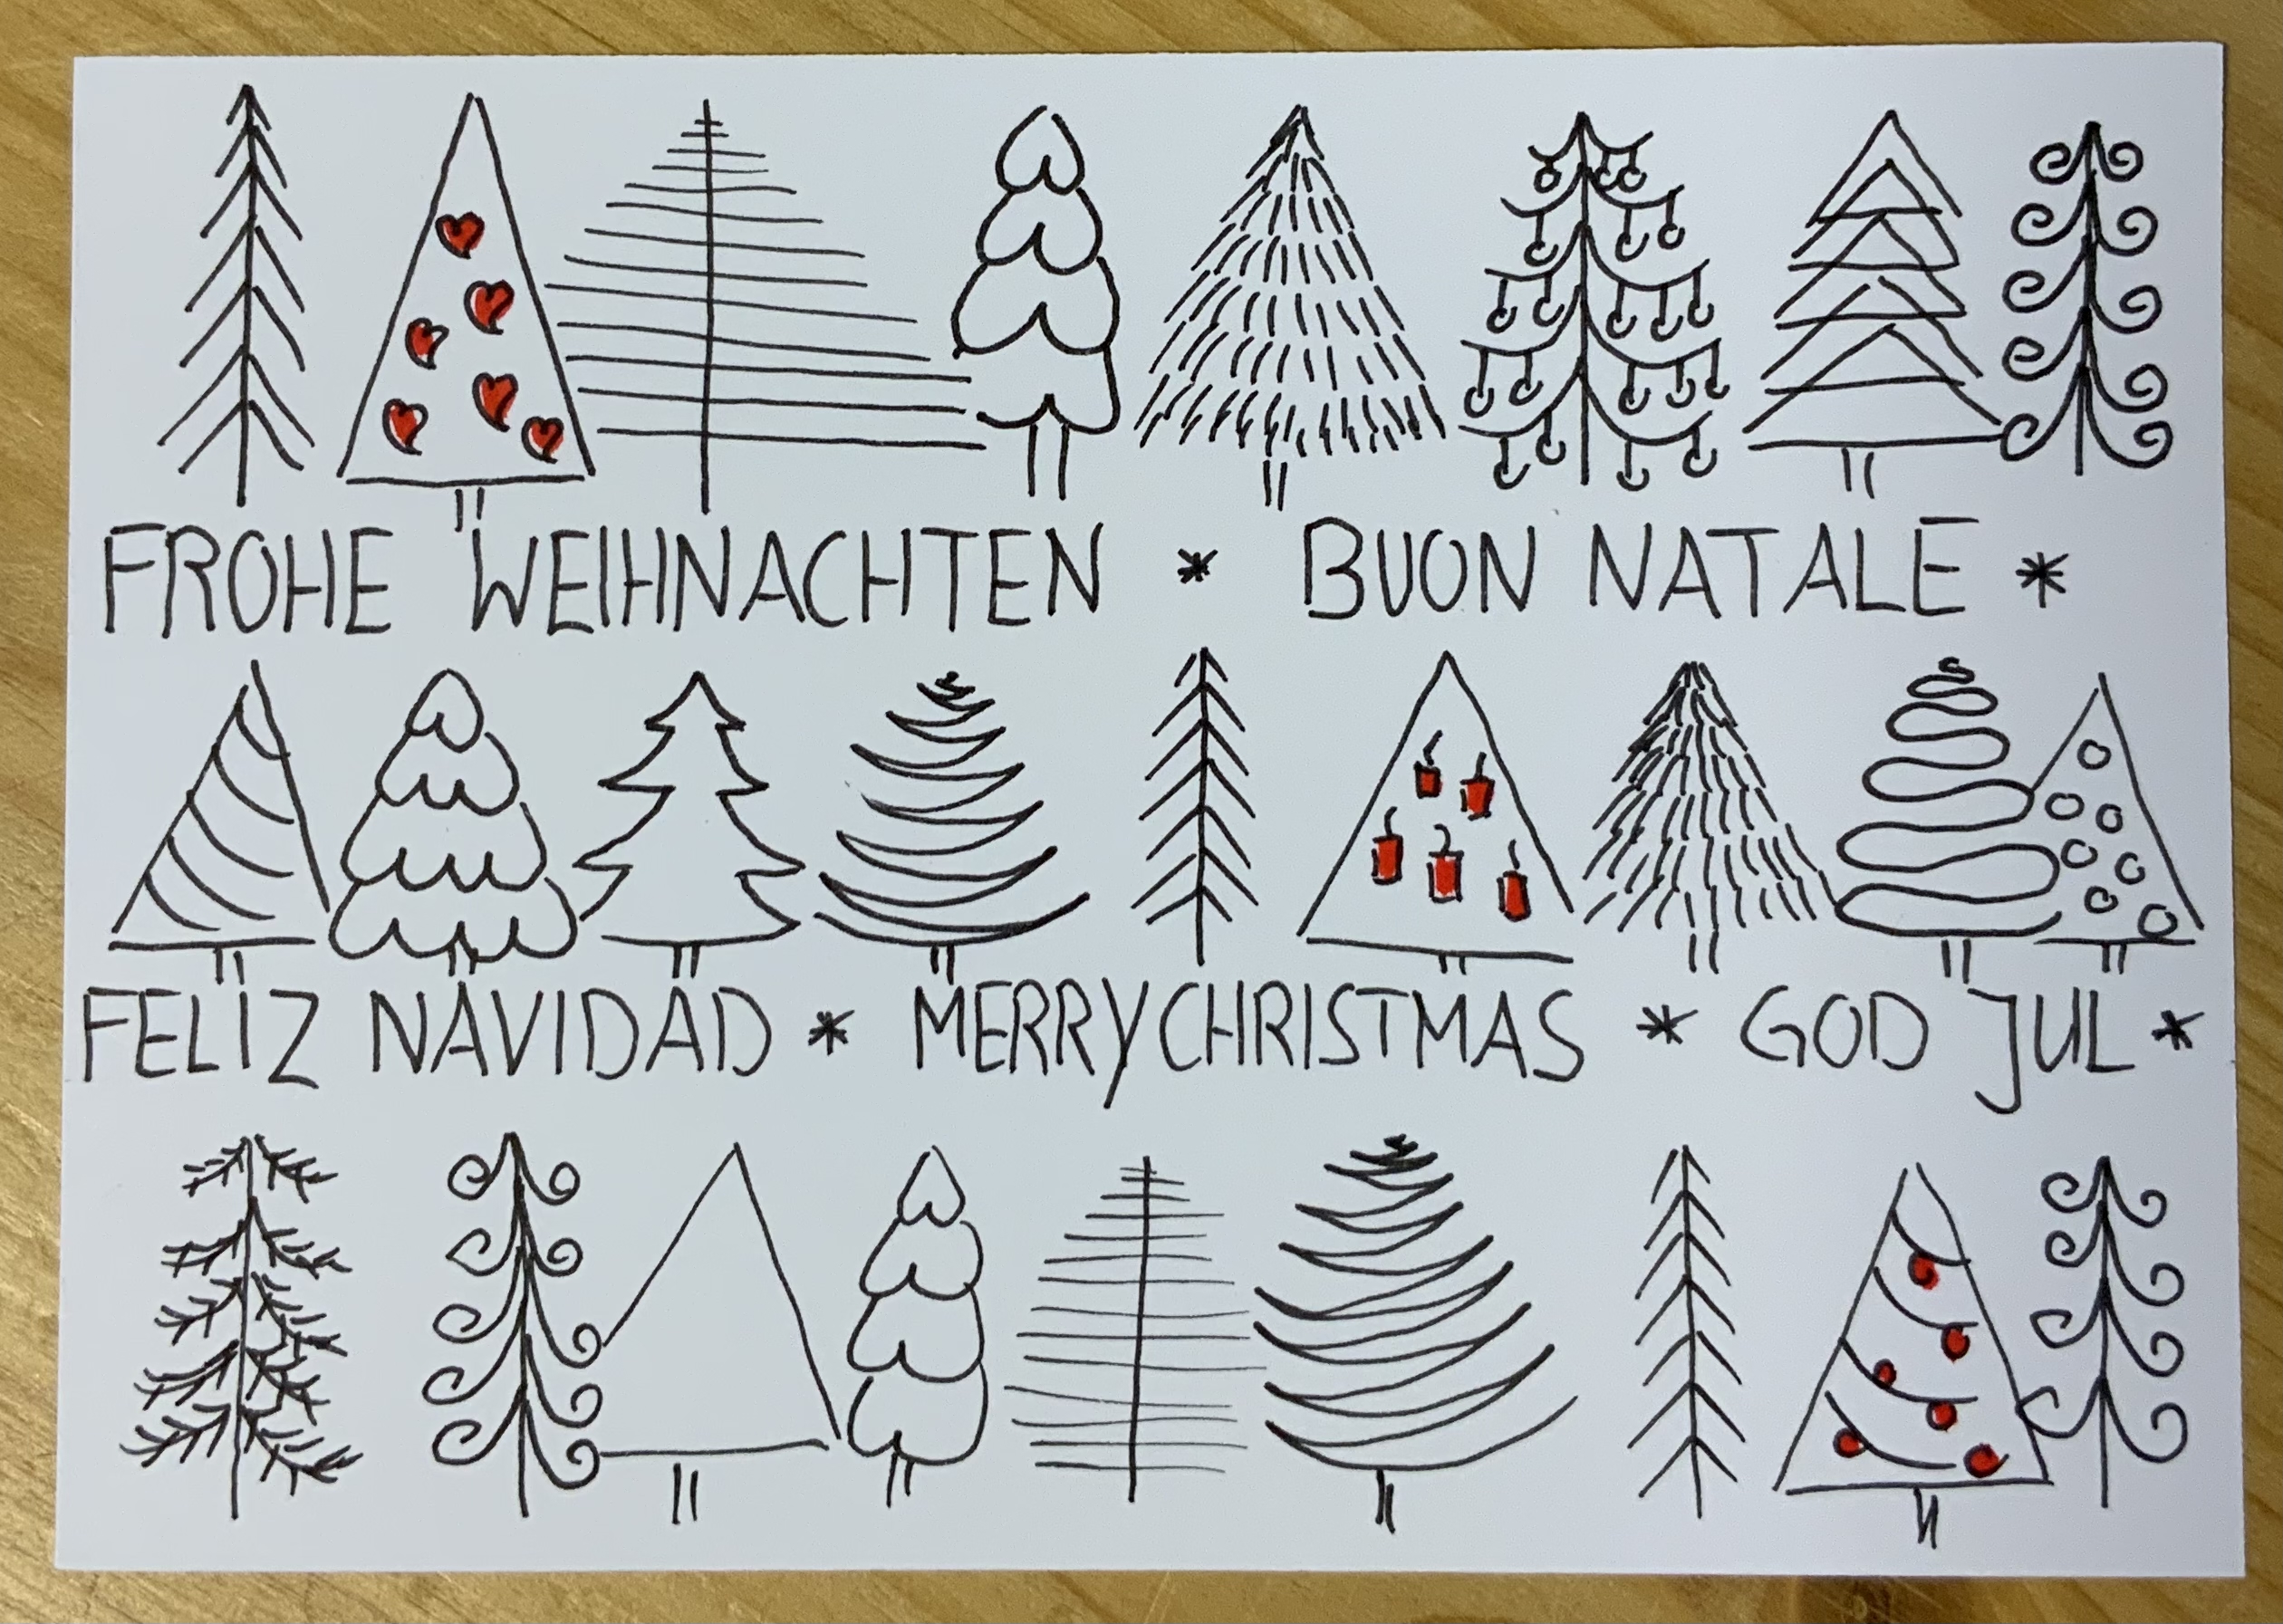 FROHE WEIHNACHTEN * BUON NATALE *
FELIZ NAVIDAD * MERRY CHRISTMAS * GOD JUL *